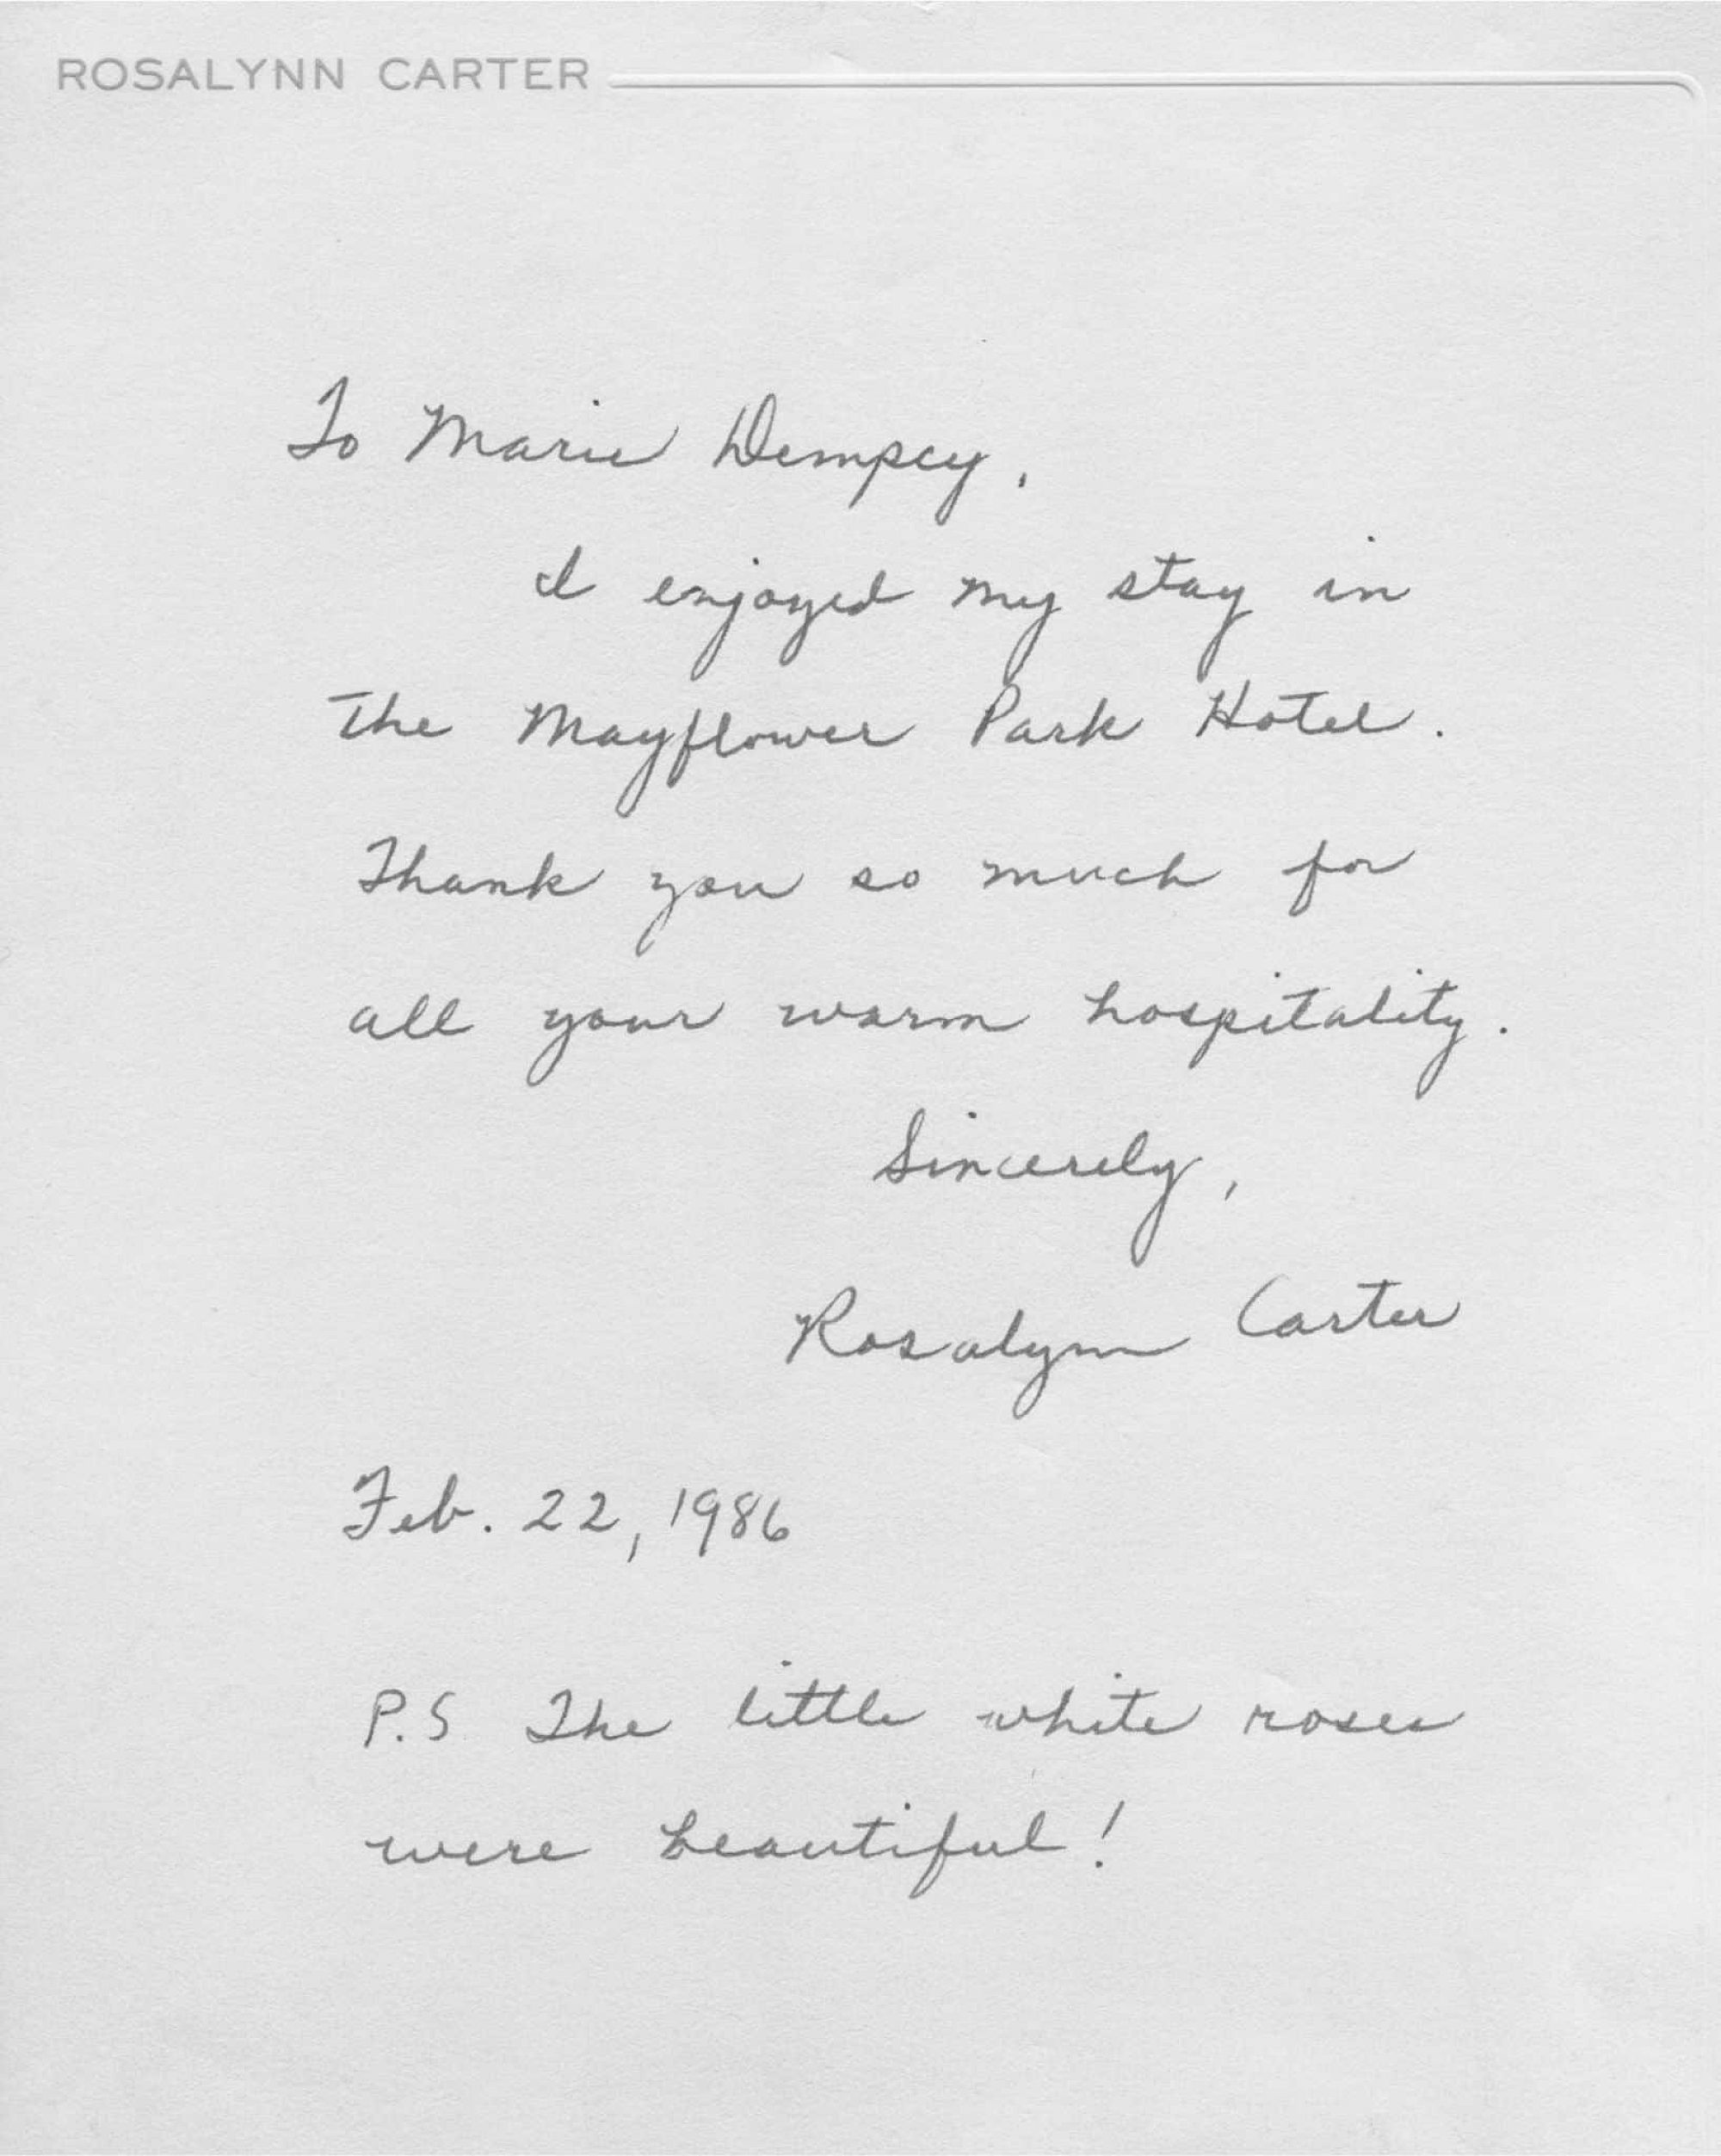 ROSALYNN CARTER
To Marie Dempcy,
I enjoyed my stay in
the Mayflower Park Hotel.
Thank you so much for
all your warm hospitality.
Sincerely,
Rosalynn Carter
Feb. 22, 1986
P.S The little white roses
were beautiful!